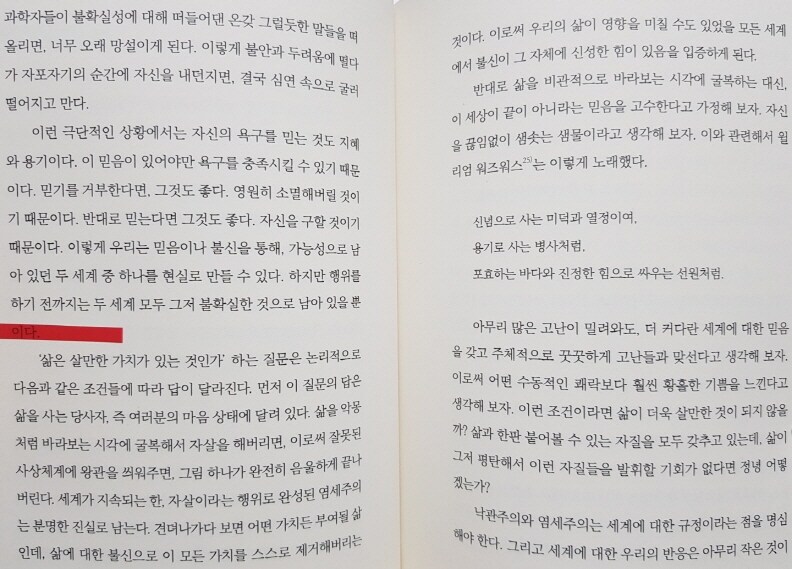 과학자들이 불확실성에 대해 떠들어댄 온갖 그럴듯한 말들을 떠
올리면, 너무 오래 망설이게 된다. 이렇게 불안과 두려움에 떨다
가 자포자기의 순간에 자신을 내던지면, 결국 심연 속으로 굴러
떨어지고 만다.
이런 극단적인 상황에서는 자신의 욕구를 믿는 것도 지혜
와 용기이다. 이 믿음이 있어야만 욕구를 충족시킬 수 있기 때문
이다. 믿기를 거부한다면, 그것도 좋다. 영원히 소멸해버릴 것이
기 때문이다. 반대로 믿는다면 그것도 좋다. 자신을 구할 것이기
때문이다. 이렇게 우리는 믿음이나 불신을 통해, 가능성으로 남
아 있던 두 세계 중 하나를 현실로 만들 수 있다. 하지만 행위를
하기 전까지는 두 세계 모두 그저 불확실한 것으로 남아 있을 뿐
이다.
'삶은 살만한 가치가 있는 것인가' 하는 질문은 논리적으로
다음과 같은 조건들에 따라 답이 달라진다. 먼저 이 질문의 답은
삶을 사는 당사자, 즉 여러분의 마음 상태에 달려 있다. 삶을 악몽
처럼 바라보는 시각에 굴복해서 자살을 해버리면, 이로써 잘못된
사상체계에 왕관을 씌워주면, 그림 하나가 완전히 음울하게 끝나
버린다. 세계가 지속되는 한, 자살이라는 행위로 완성된 염세주의
는 분명한 진실로 남는다. 견뎌나가다 보면 어떤 가치든 부여될 삶
인데, 삶에 대한 불신으로 이 모든 가치를 스스로 제거해버리는
것이다. 이로써 우리의 삶이 영향을 미칠 수도 있었을 모든 세계
에서 불신이 그 자체에 신성한 힘이 있음을 입증하게 된다.
반대로 삶을 비관적으로 바라보는 시각에 굴복하는 대신,
이 세상이 끝이 아니라는 믿음을 고수한다고 가정해 보자. 자신
을 끊임없이 샘솟는 샘물이라고 생각해 보자. 이와 관련해서 윌
리엄 워즈워스25)는 이렇게 노래했다.
신념으로 사는 미덕과 열정이여,
용기로 사는 병사처럼,
포효하는 바다와 진정한 힘으로 싸우는 선원처럼.
아무리 많은 고난이 밀려와도, 더 커다란 세계에 대한 믿음
을 갖고 주체적으로 꿋꿋하게 고난들과 맞선다고 생각해 보자.
이로써 어떤 수동적인 쾌락보다 훨씬 황홀한 기쁨을 느낀다고
생각해 보자. 이런 조건이라면 삶이 더욱 살만한 것이 되지 않을
까? 삶과 한판 붙어볼 수 있는 자질을 모두 갖추고 있는데, 삶이
그저 평탄해서 이런 자질들을 발휘할 기회가 없다면 정녕 어떻
겠는가?
낙관주의와 염세주의는 세계에 대한 규정이라는 점을 명심
해야 한다. 그리고 세계에 대한 우리의 반응은 아무리 작은 것이